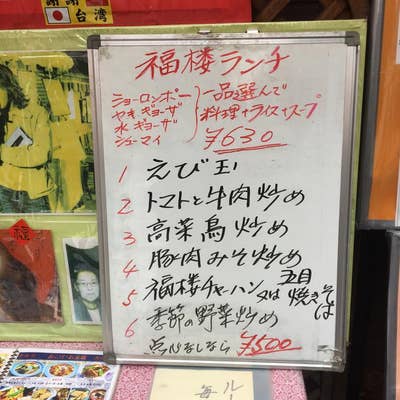 謝謝
台湾
福楼ランチ
ショーロンポー
ヤキギョーザ
水ギョーザ
シューマイ
一品を選んで
料理+ライス+スープ
¥630
1 えび玉
2 トマトと牛肉炒め
3 高菜鳥炒め
4 豚肉みそ炒め
5 福楼チャーハン又は五目焼きそば
6 季節の野菜炒め
点心なしなら ¥500
福
ルー
毎